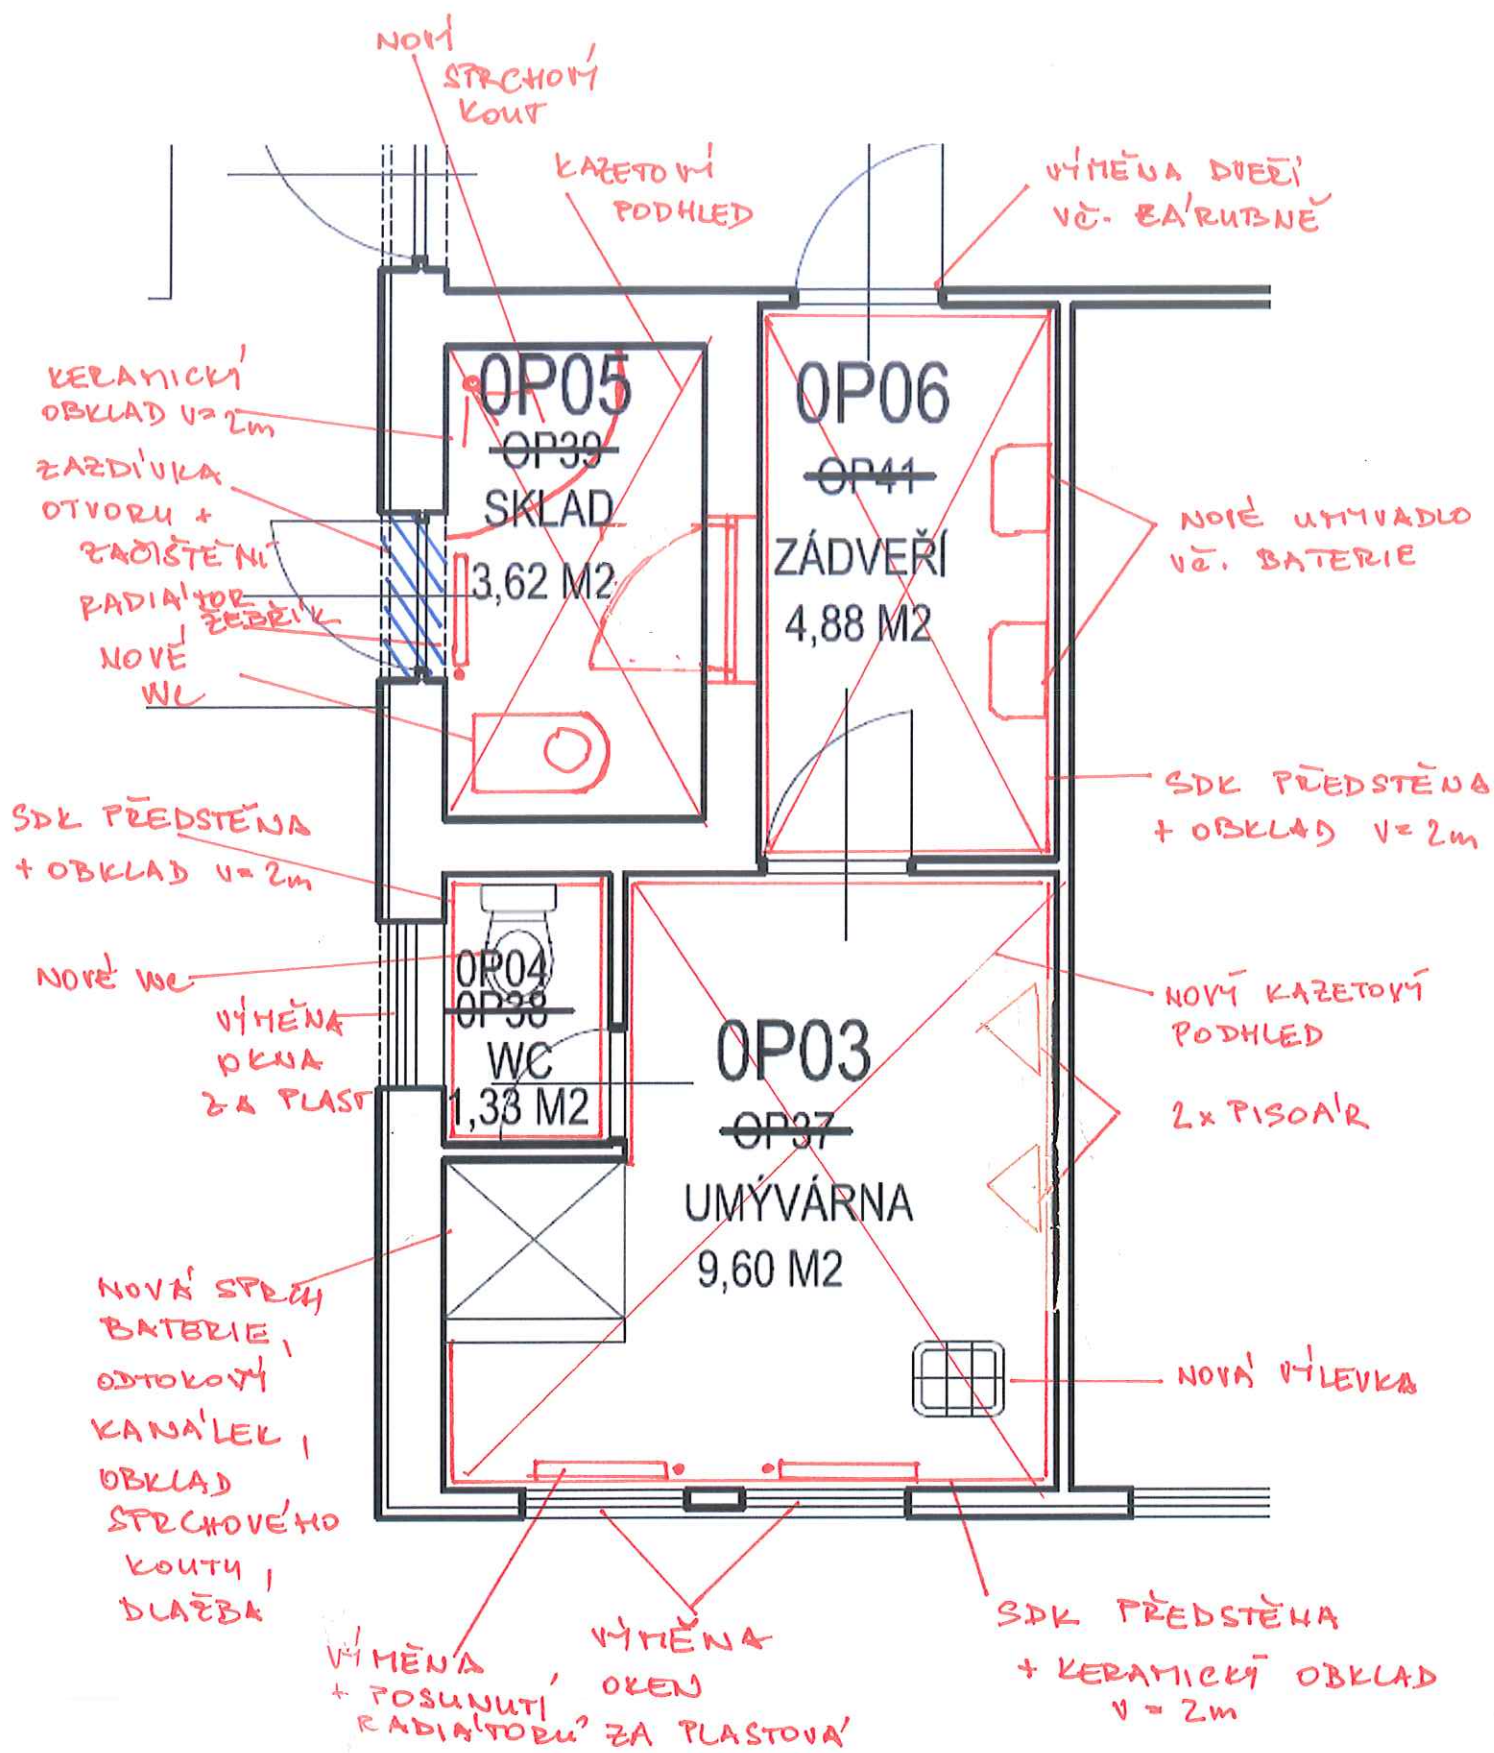 NOVÝ
SPRCHOVÝ
KOUT
KAZETOVÝ
PODHLED
VÝMĚNA DVEŘÍ
VČ. ZÁRUBNĚ
KERAMICKÝ
OBKLAD V=2m
ZAZDÍVKA
OTVORU +
ZAČIŠTĚNÍ
RADIÁTOR
ŽEBŘÍK
NOVÉ
WC
0P05
OP39
SKLAD
3,62 M2
0P06
OP41
ZÁDVEŘÍ
4,88 M2
NOVÉ UMYVADLO
VČ. BATERIE
SDK PŘEDSTĚNA
+ OBKLAD V=2m
SDK PŘEDSTĚNA
+ OBKLAD V=2m
NOVÉ WC
VÝMĚNA
OKNA
ZA PLAST
0P04
0P38
WC
1,33 M2
0P03
OP37
UMÝVÁRNA
9,60 M2
NOVÝ KAZETOVÝ
PODHLED
2x PISOÁR
NOVÁ VÝLEVKA
NOVÁ SPRCH
BATERIE,
ODTOKOVÝ
KANÁLEK,
OBKLAD
SPRCHOVÉHO
KOUTU,
DLAŽBA
VÝMĚNA
+ POSUNUTÍ
RADIÁTORŮ
VÝMĚNA
OKEN
ZA PLASTOVÁ
SDK PŘEDSTĚNA
+ KERAMICKÝ OBKLAD
V=2m